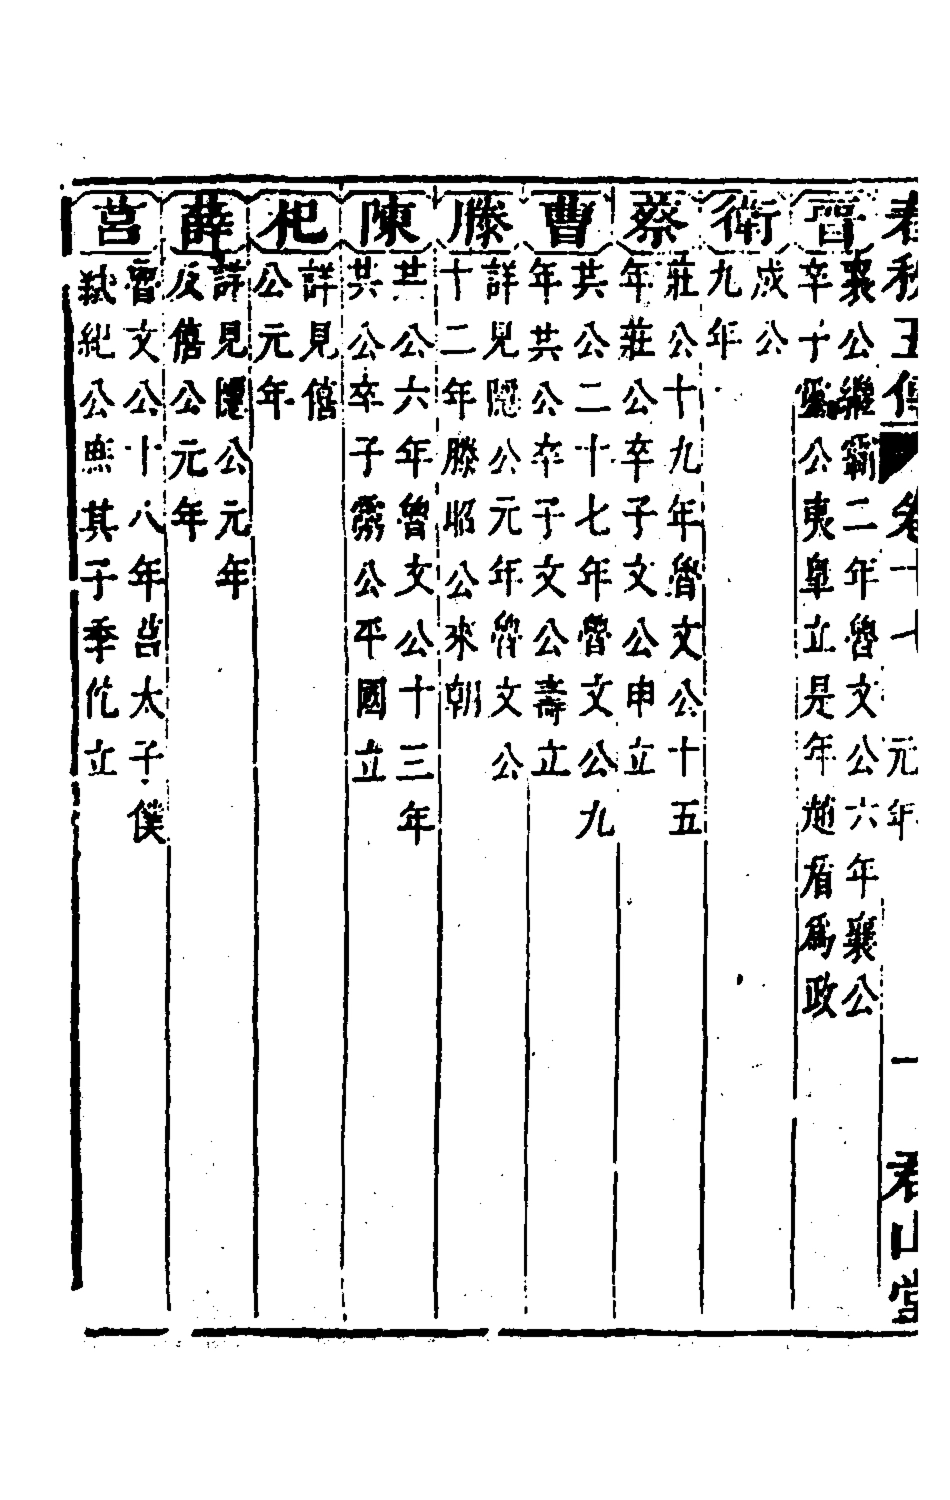 春秋五傳 卷十七 元年 一 君山堂
晉
襄公繼霸二年魯文公六年襄公
卒子靈公夷皐立是年趙盾爲政
衛
成公
九年
蔡
莊公十九年魯文公十五
年莊公卒子文公申立
曹
共公二十七年魯文公九
年共公卒子文公壽立
滕
詳見隱公元年魯文公
十二年滕昭公來朝
陳
共公六年魯文公十三年
共公卒子靈公平國立
杞
詳見僖
公元年
薛
詳見隱公元年
及僖公元年
莒
魯文公十八年莒太子僕
弑紀公庶其子季佗立